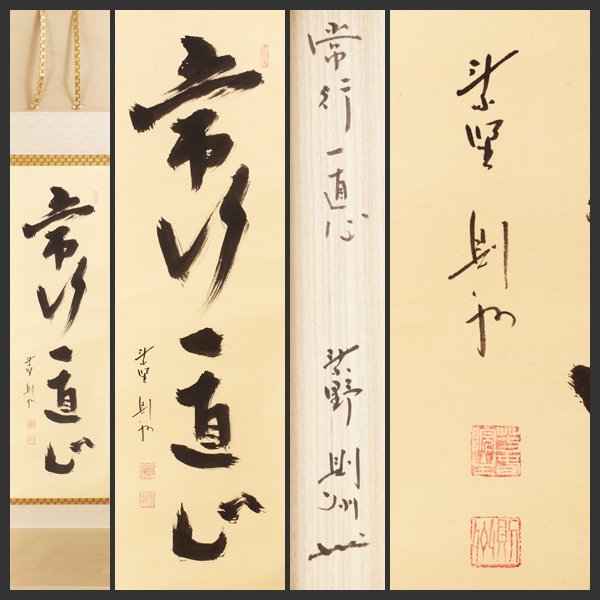 常行一直心
紫野 則州
常行一直心
紫野 則州
常行一直心
紫野 則州
紫野 則州
則州